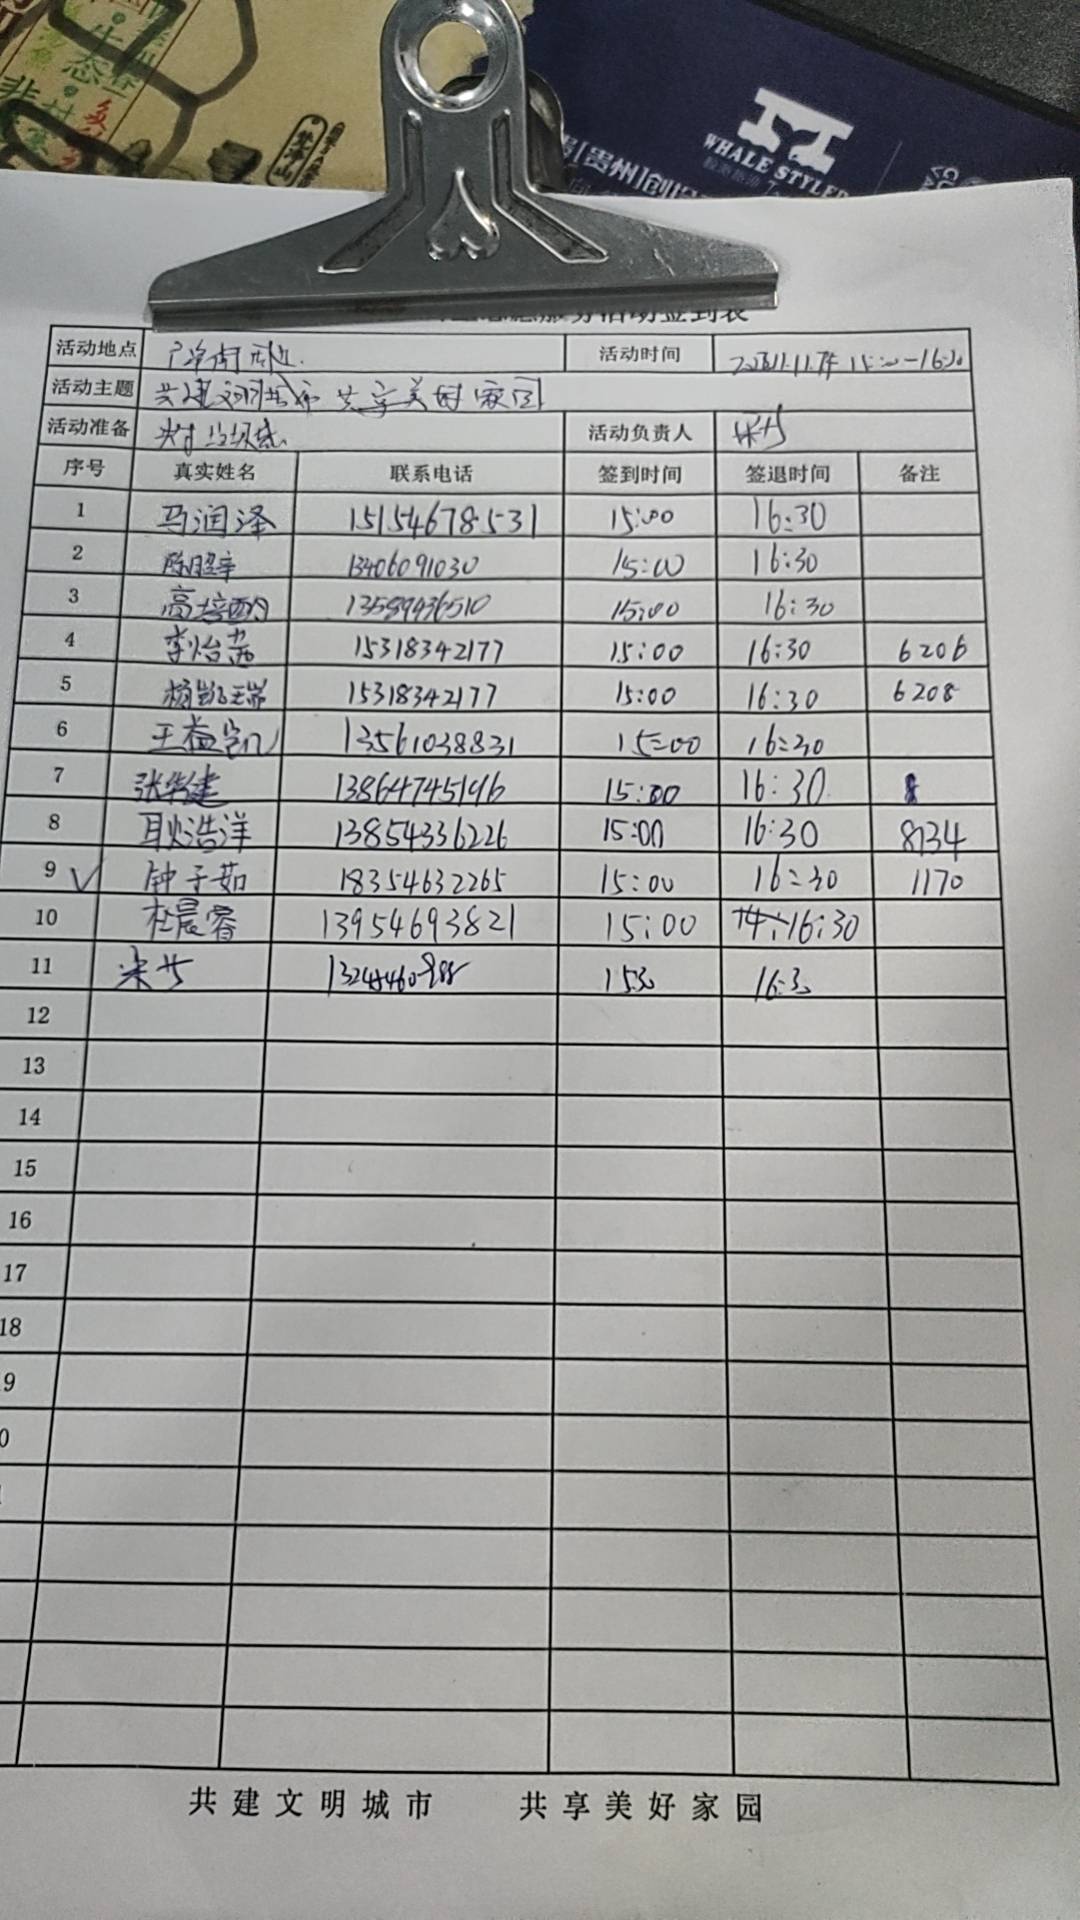 生态
梵净山
贵州
WHALE STYLED
服务活动签到表
活动地点 周边 活动时间 15:00-16:30
活动主题 共建文明城市 共享美好家园
活动准备 活动负责人
序号 真实姓名 联系电话 签到时间 签退时间 备注
1 马润泽 15154678531 15:00 16:30
2 13406091030 15:00 16:30
3 高培 13589936510 15:00 16:30
4 李怡茜 15318342177 15:00 16:30 6206
5 杨凯瑞 15318342177 15:00 16:30 6208
6 王益凯 13561038831 15:00 16:30
7 张华建 13864745196 15:00 16:30
8 耿浩洋 13854336226 15:00 16:30 8134
9 ✓ 钟子茹 18354632265 15:00 16:30 1170
10 杜晨睿 13954693821 15:00 16:30
11 15:30 16:30
12
13
14
15
16
17
18
9
0
共建文明城市 共享美好家园